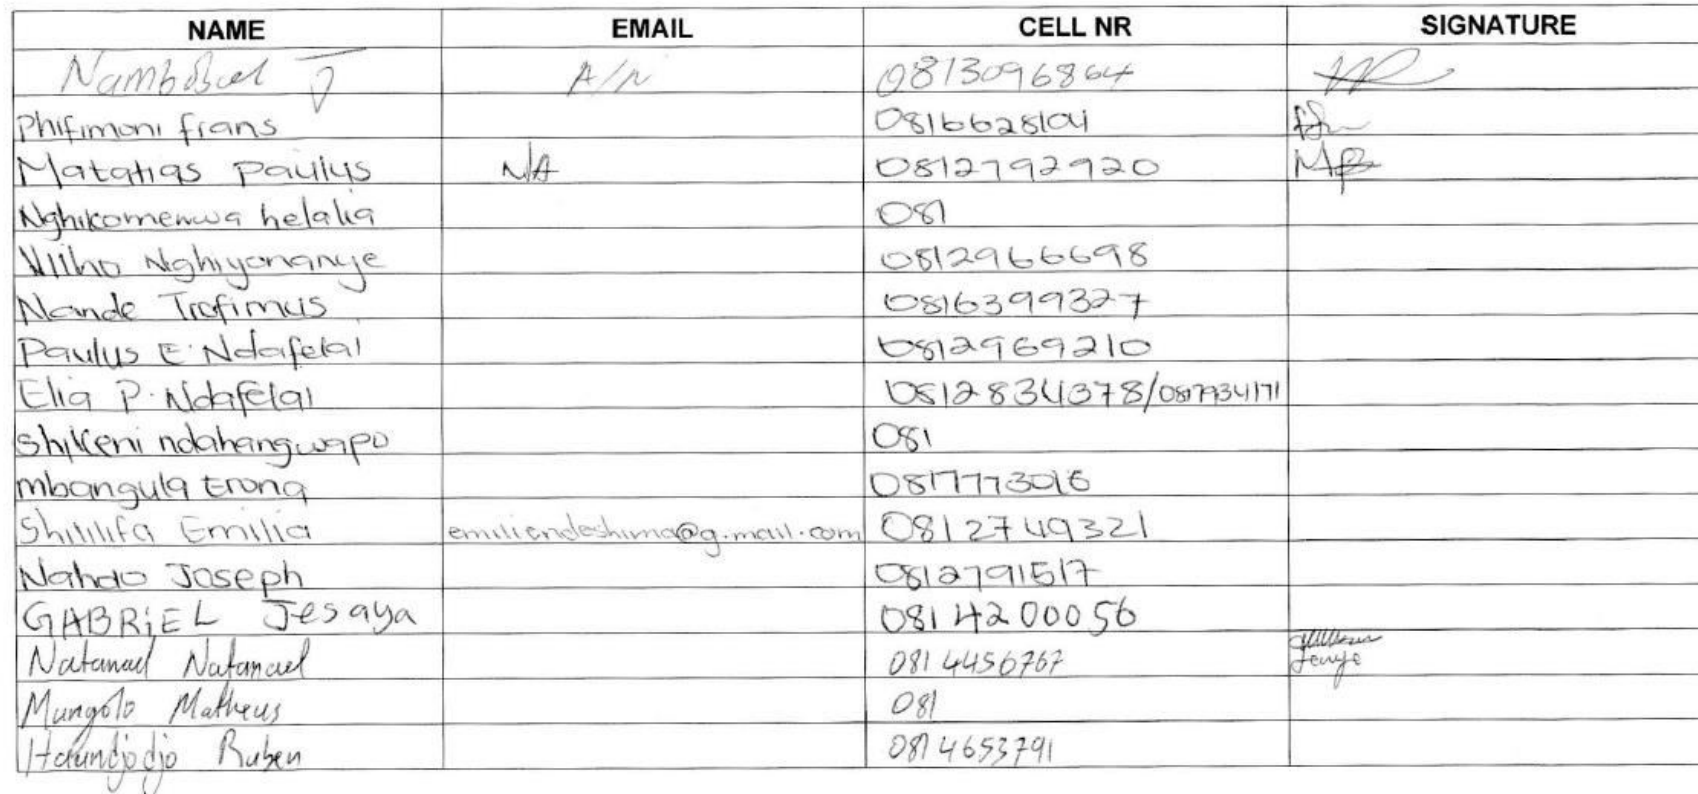 NAME EMAIL CELL NR SIGNATURE
J A/N 0813096864
Phifimoni frans 0816628104
Matatias Paulus N/A 0812792920
Nghikomenwa helalia 081
Vilho Nghiyonanye 0812966698
Nande Trofimus 0816399327
Paulus E. Ndafelai 0812969210
Elia P. Ndafelai 0812834378/0817934171
Shikeni ndahangwapo 081
mbangula Erona 0817773016
Shililifa Emilia emiliendeshima@g.mail.com 0812749321
Nahdo Joseph 0812791517
GABRiEL Jesaya 0814200056
Natanael Natanael 0814456767
Mungolo Matheus 081
Haundjodjo Ruben 0814653791